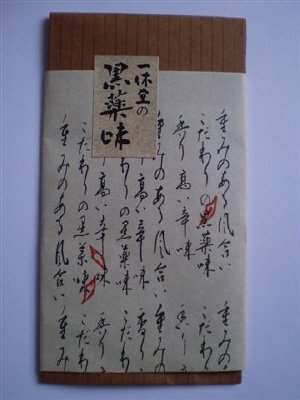 一休堂の
黒薬味
重みのある風合い 重みの
こだわりの黒薬味 こだわ
香り高い辛味 香り高
重みの 風合い 重み
高い辛味 香り
わりの黒薬味 こだわ
り高い辛味 香り
こだわりの黒薬味 こだわ
重みのある風合い 重み